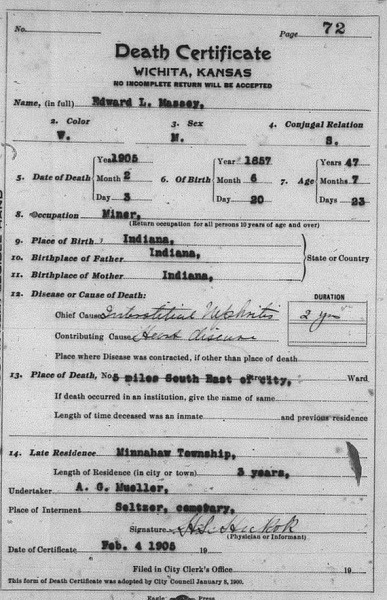 No. Page 72
Death Certificate
WICHITA, KANSAS
NO INCOMPLETE RETURN WILL BE ACCEPTED
Name, (in full) Edward L. Massey,
2. Color 3. Sex 4. Conjugal Relation
W. M. S.
Year 1905 Year 1857 Years 47
5. Date of Death Month 2 6. Of Birth Month 6 7. Age Months 7
Day 3 Day 20 Days 23
8. Occupation Miner,
(Return occupation for all persons 10 years of age and over)
9. Place of Birth Indiana,
10. Birthplace of Father Indiana, State or Country
11. Birthplace of Mother Indiana,
12. Disease or Cause of Death: DURATION
Chief Cause Interstitial Nephritis 2 yrs
Contributing Cause Heart disease
Place where Disease was contracted, if other than place of death
13. Place of Death, No. 5 miles South East of city, Ward
If death occurred in an institution, give the name of same
Length of time deceased was an inmate and previous residence
14. Late Residence Minnahaw Township,
Length of Residence (in city or town) 3 years,
Undertaker A. G. Mueller,
Place of Interment Seltzer, cemetary,
Signature
(Physician or Informant)
Date of Certificate Feb. 4 1905 19
Filed in City Clerk's Office 19
This form of Death Certificate was adopted by City Council January 8, 1900.
Eagle Press